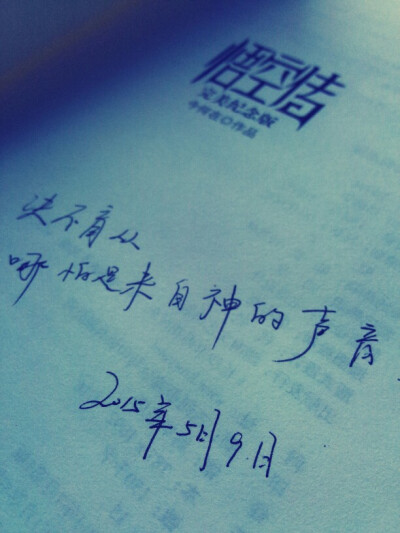 悟空传
完美纪念版
今何在◎作品
决不盲从
哪怕是来自神的声音.
2015年5月9日